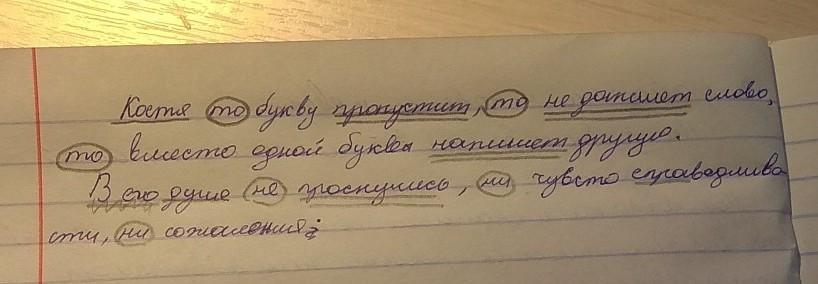 Костя то букву пропустит, то не допишет слово,
то вместо одной буквы напишет другую.
В его душе не проснулись, ни чувсто справедлива
сти, ни сожаления: